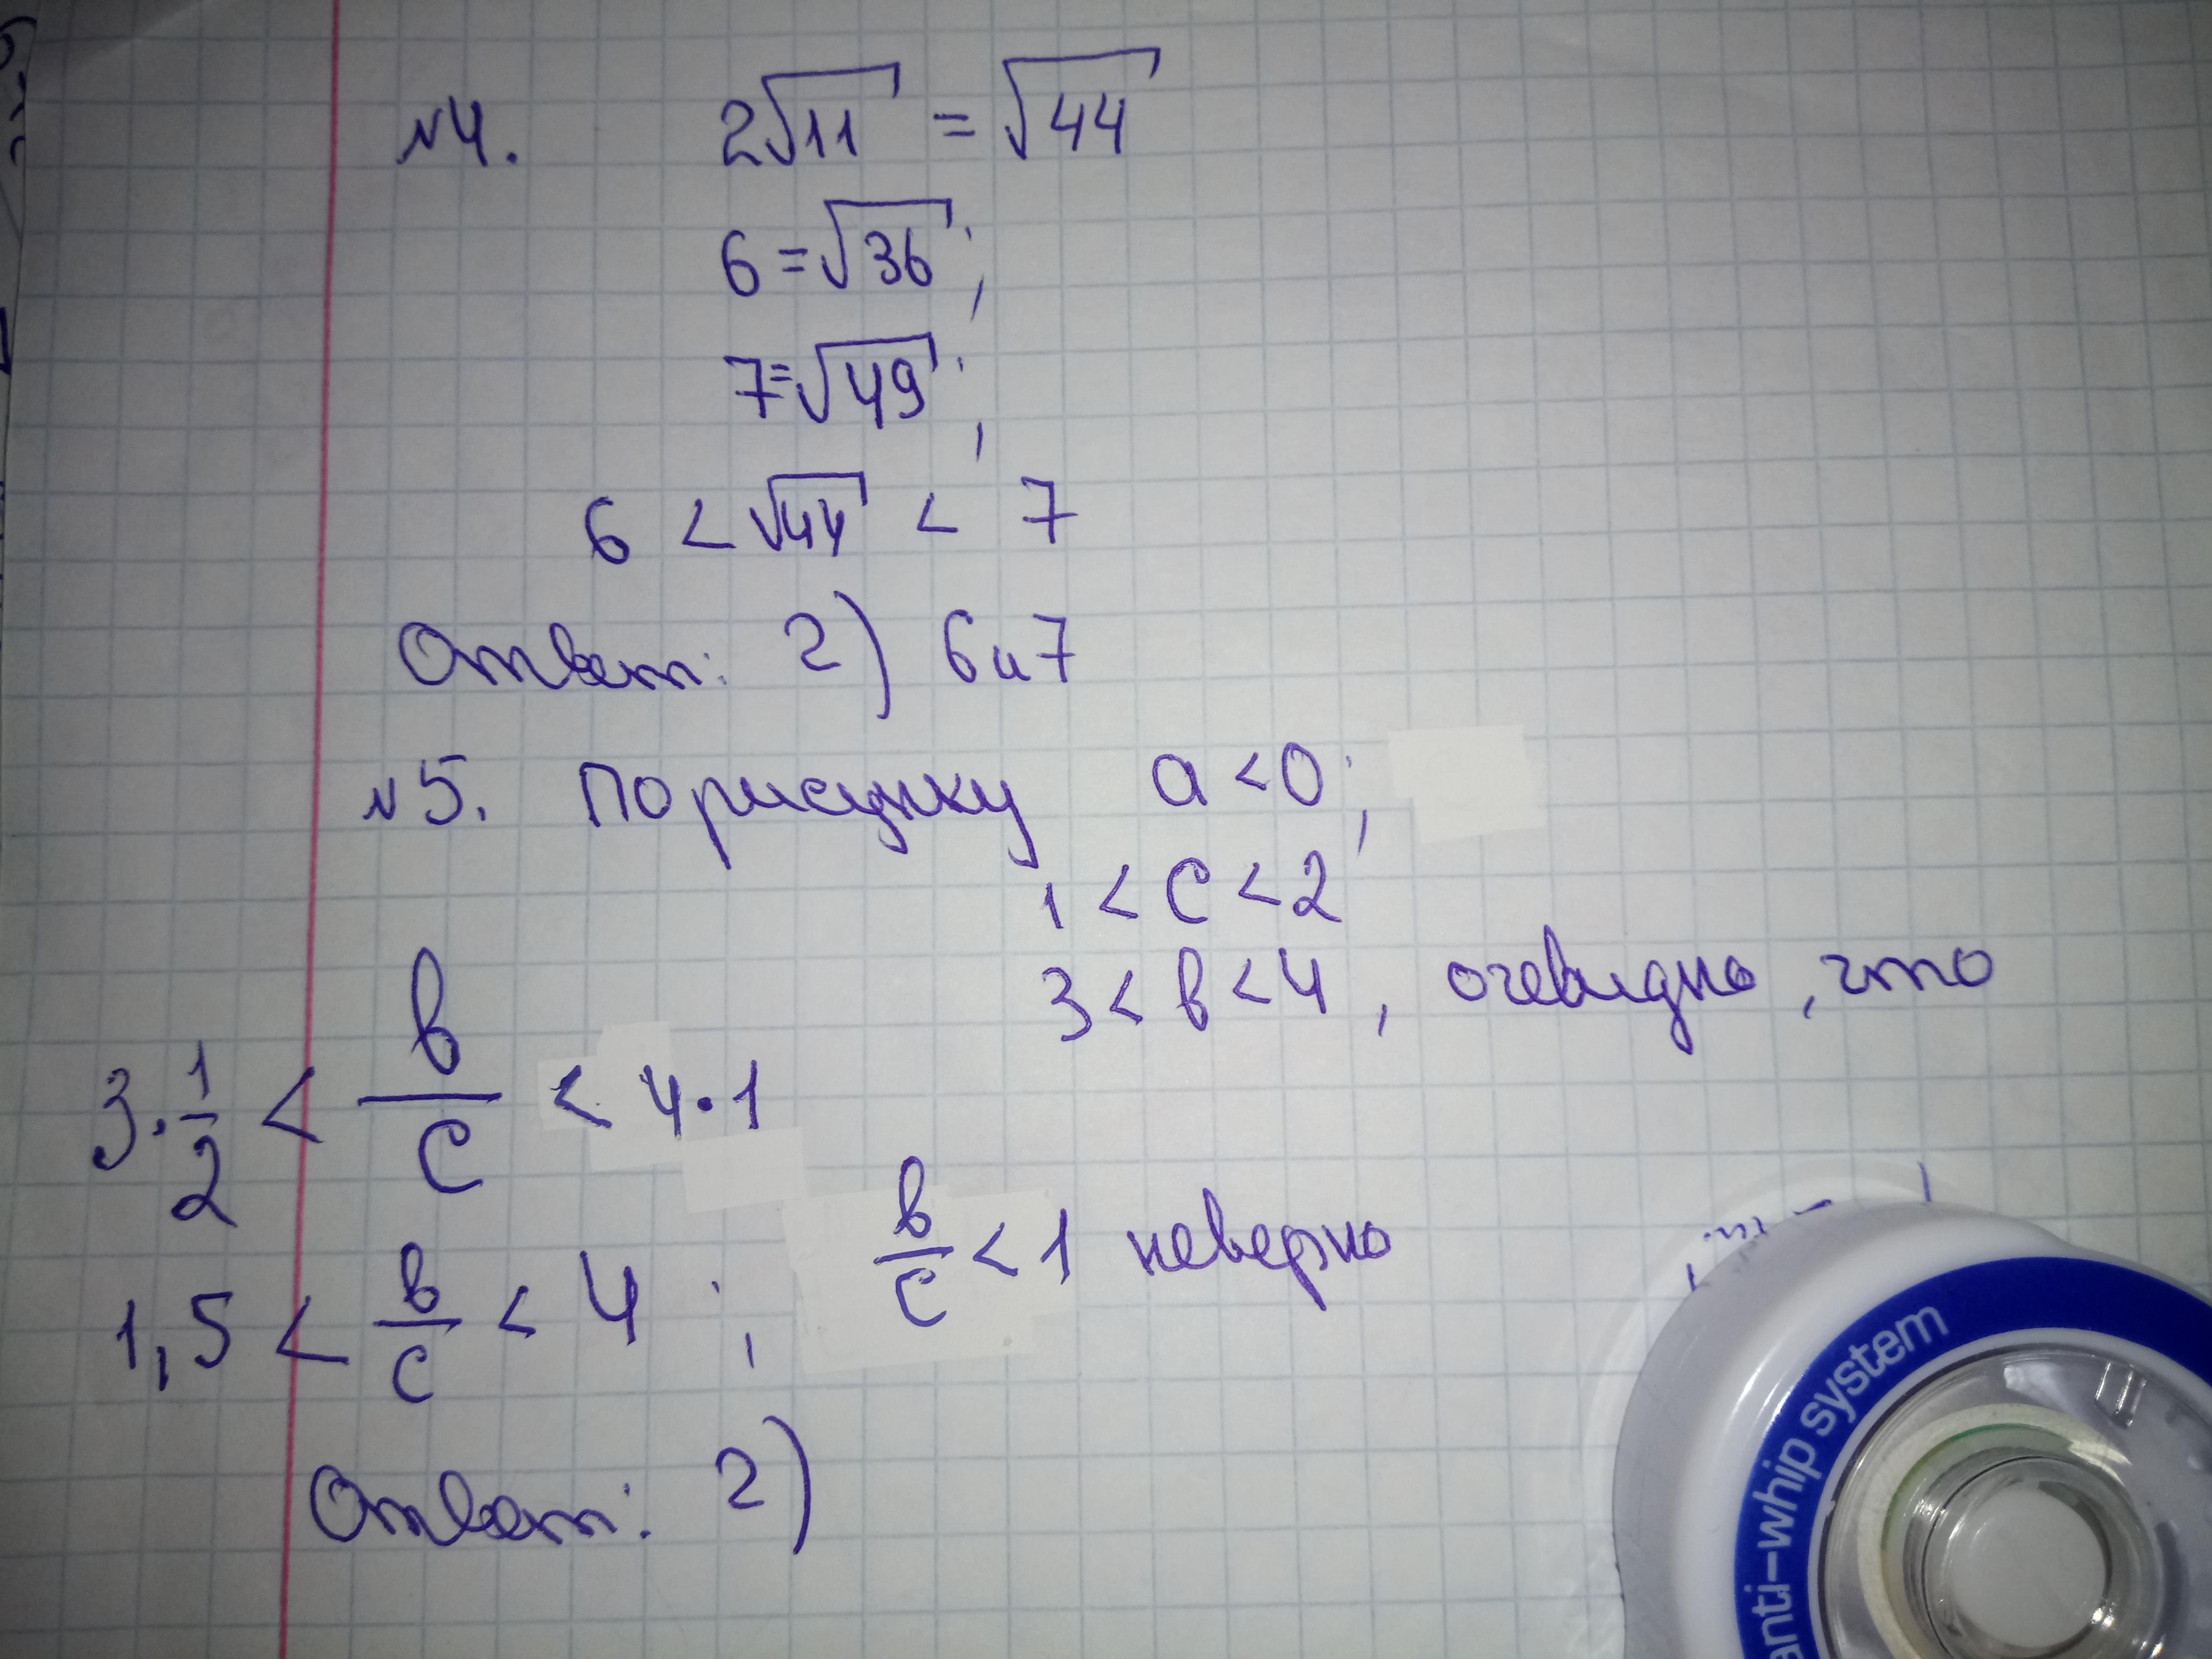 №4. 2√11 = √44
6 = √36;
7 = √49;
6 < √44 < 7
Ответ: 2) 6 и 7
№5. По рисунку a < 0;
1 < c < 2
3 < b < 4, очевидно, что
3 · 1/2 < b/c < 4 · 1
1,5 < b/c < 4; b/c < 1 неверно
Ответ: 2)
anti-whip system